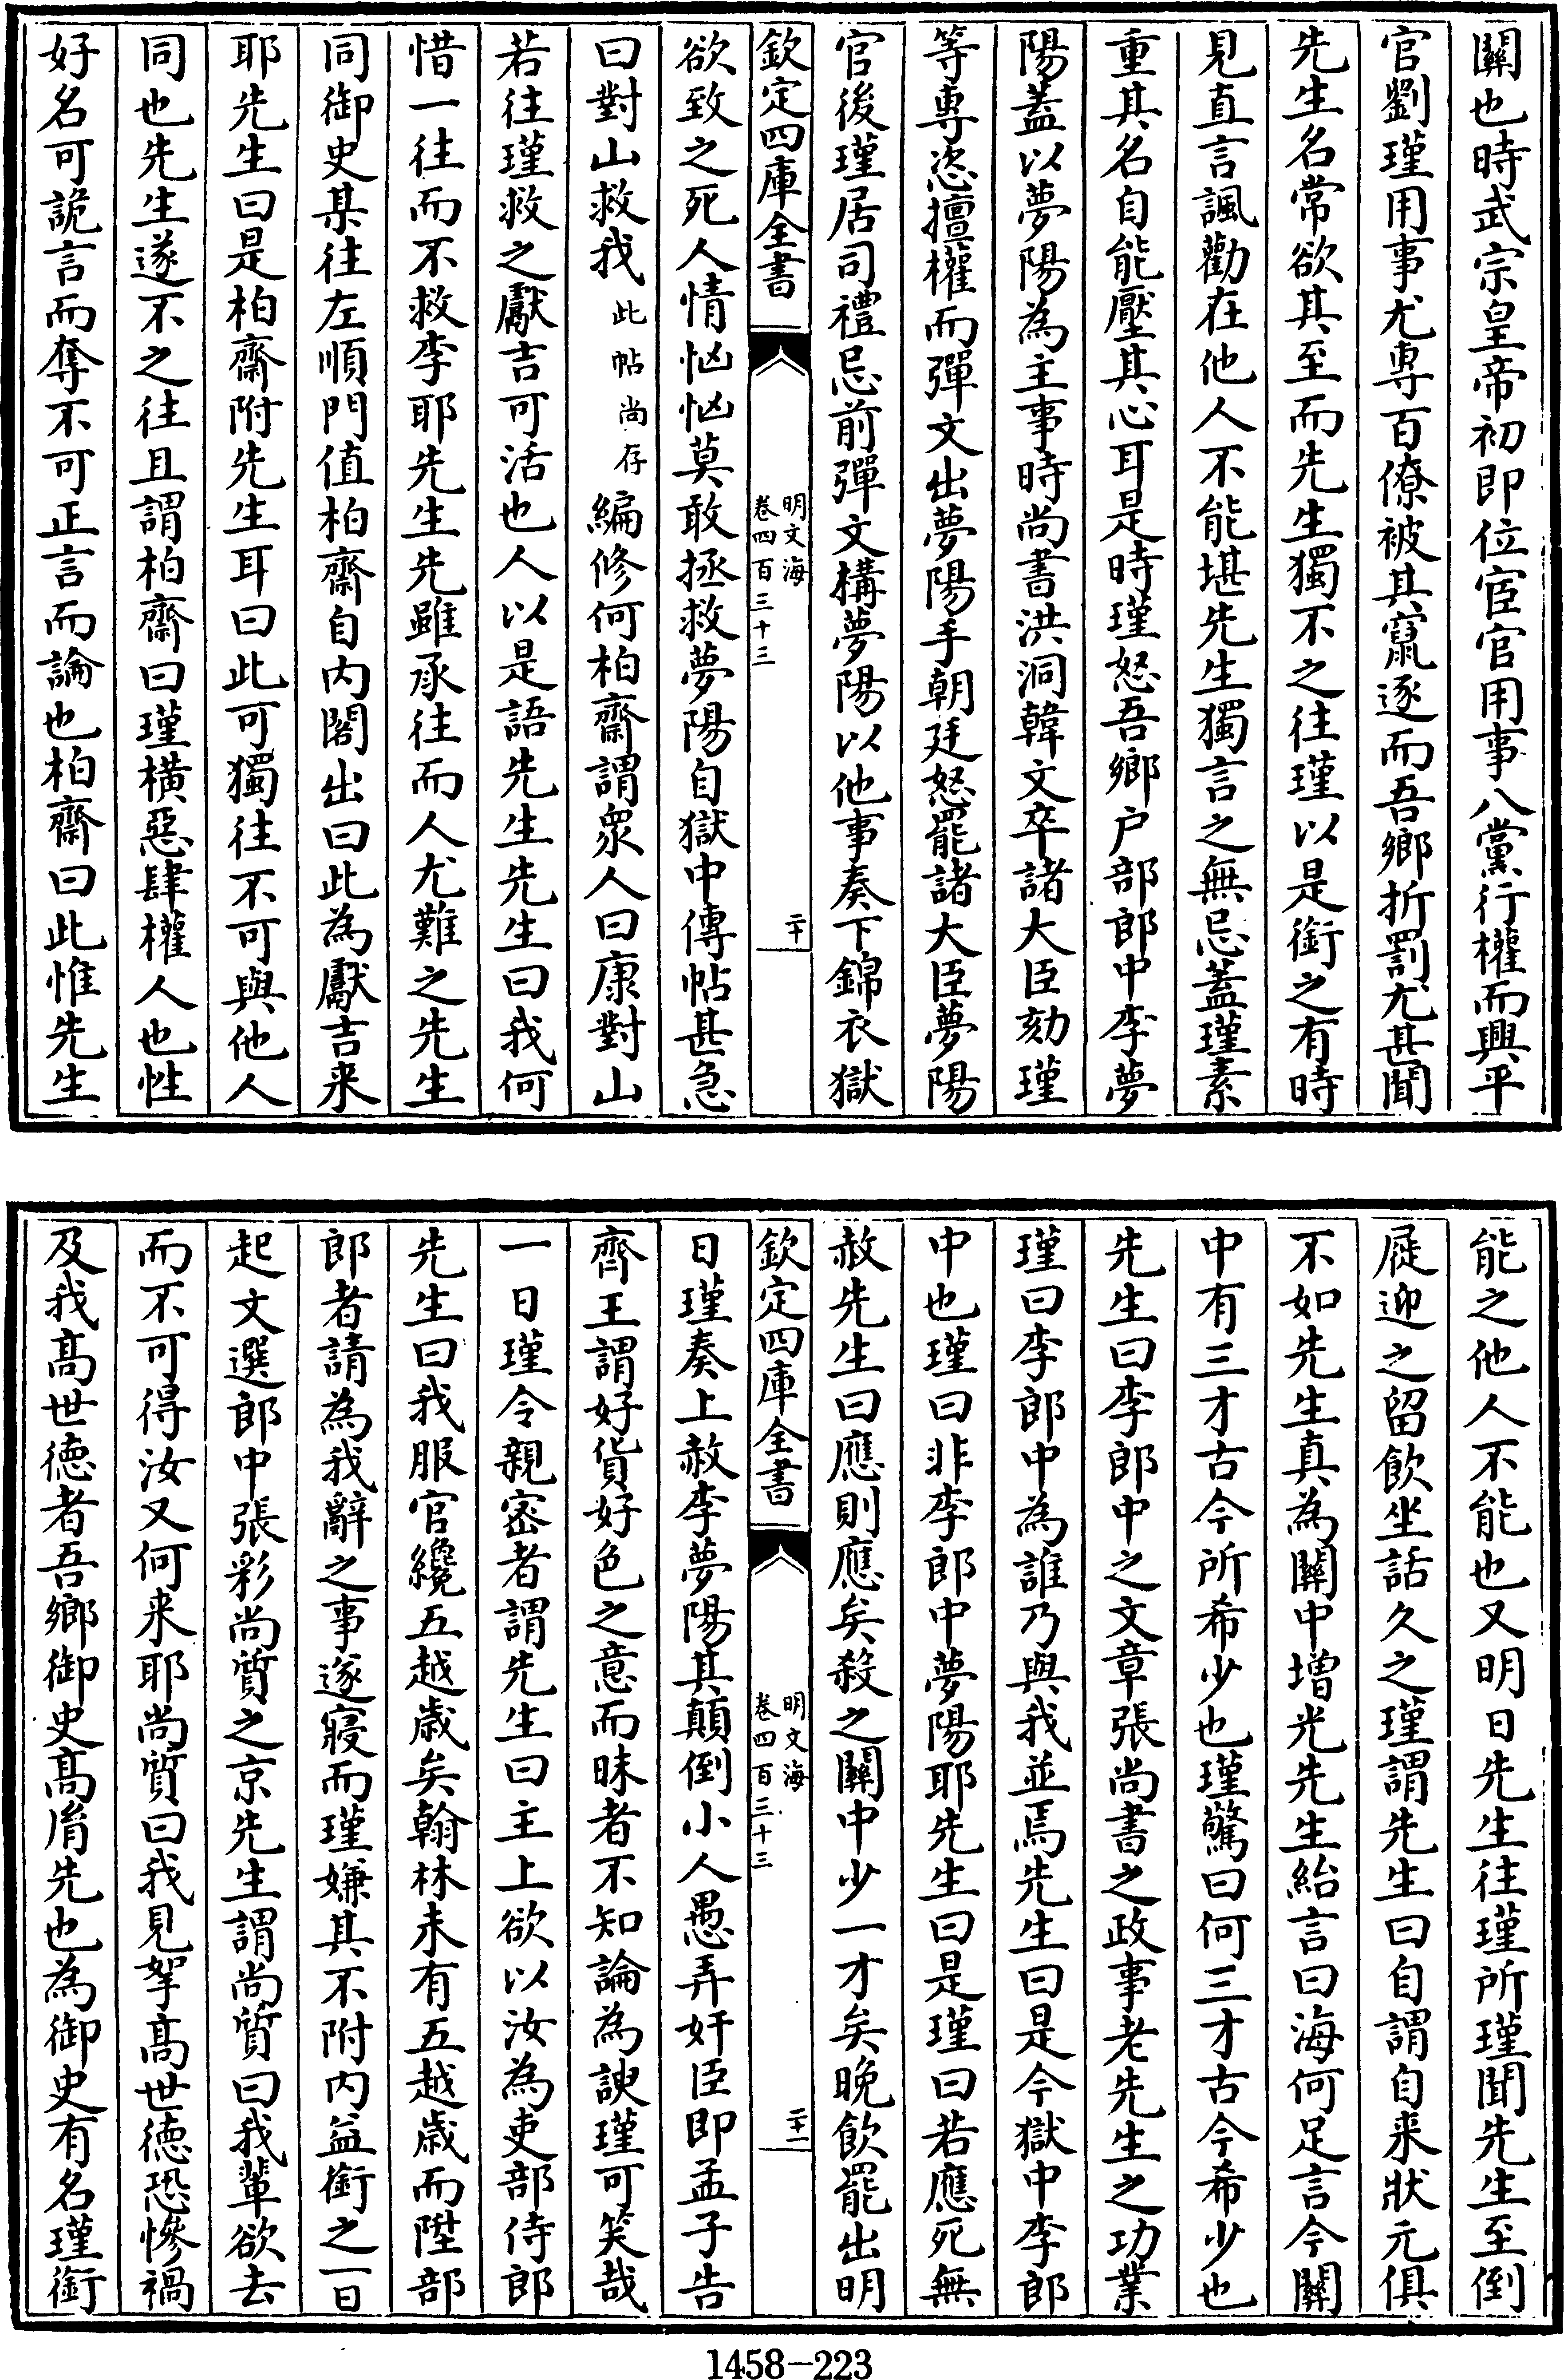 關也時武宗皇帝初即位宦官用事八黨行權而興平
官劉瑾用事尤專百僚被其竄逐而吾鄉折罰尤甚聞
先生名常欲其至而先生獨不之往瑾以是銜之有時
見直言諷勸在他人不能堪先生獨言之無忌蓋瑾素
重其名自能壓其心耳是時瑾怒吾鄉户部郎中李夢
陽蓋以夢陽為主事時尚書洪洞韓文卒諸大臣劾瑾
等專恣擅權而彈文出夢陽手朝廷怒罷諸大臣夢陽
官後瑾居司禮忌前彈文構夢陽以他事奏下錦衣獄
欽定四庫全書 明文海 卷四百三十三 二十
欲致之死人情恟恟莫敢拯救夢陽自獄中傳帖甚急
曰對山救我此帖尚存編修何柏齋謂眾人曰康對山
若往瑾救之獻吉可活也人以是語先生先生曰我何
惜一往而不救李耶先生先雖承往而人尤難之先生
同御史某往左順門值柏齋自内閣出曰此為獻吉来
耶先生曰是柏齋附先生耳曰此可獨往不可與他人
同也先生遂不之往且謂柏齋曰瑾橫惡肆權人也性
好名可詭言而奪不可正言而論也柏齋曰此惟先生
能之他人不能也又明日先生往瑾所瑾聞先生至倒
屣迎之留飲坐話久之瑾謂先生曰自謂自来狀元俱
不如先生真為關中增光先生紿言曰海何足言今關
中有三才古今所希少也瑾驚曰何三才古今希少也
先生曰李郎中之文章張尚書之政事老先生之功業
瑾曰李郎中為誰乃與我並焉先生曰是今獄中李郎
中也瑾曰非李郎中夢陽耶先生曰是瑾曰若應死無
赦先生曰應則應矣殺之關中少一才矣晚飲罷出明
欽定四庫全書 明文海 卷四百三十三 二十一
日瑾奏上赦李夢陽其顛倒小人愚弄奸臣即孟子告
齊王謂好貨好色之意而昧者不知論為諛瑾可笑哉
一日瑾令親密者謂先生曰主上欲以汝為吏部侍郎
先生曰我服官纔五越歲矣翰林未有五越歲而陞部
郎者請為我辭之事遂寢而瑾嫌其不附内益銜之一日
起文選郎中張彩尚質之京先生謂尚質曰我輩欲去
而不可得汝又何来耶尚質曰我見挐高世德恐慘禍
及我高世德者吾鄉御史高胤先也為御史有名瑾銜
1458—223